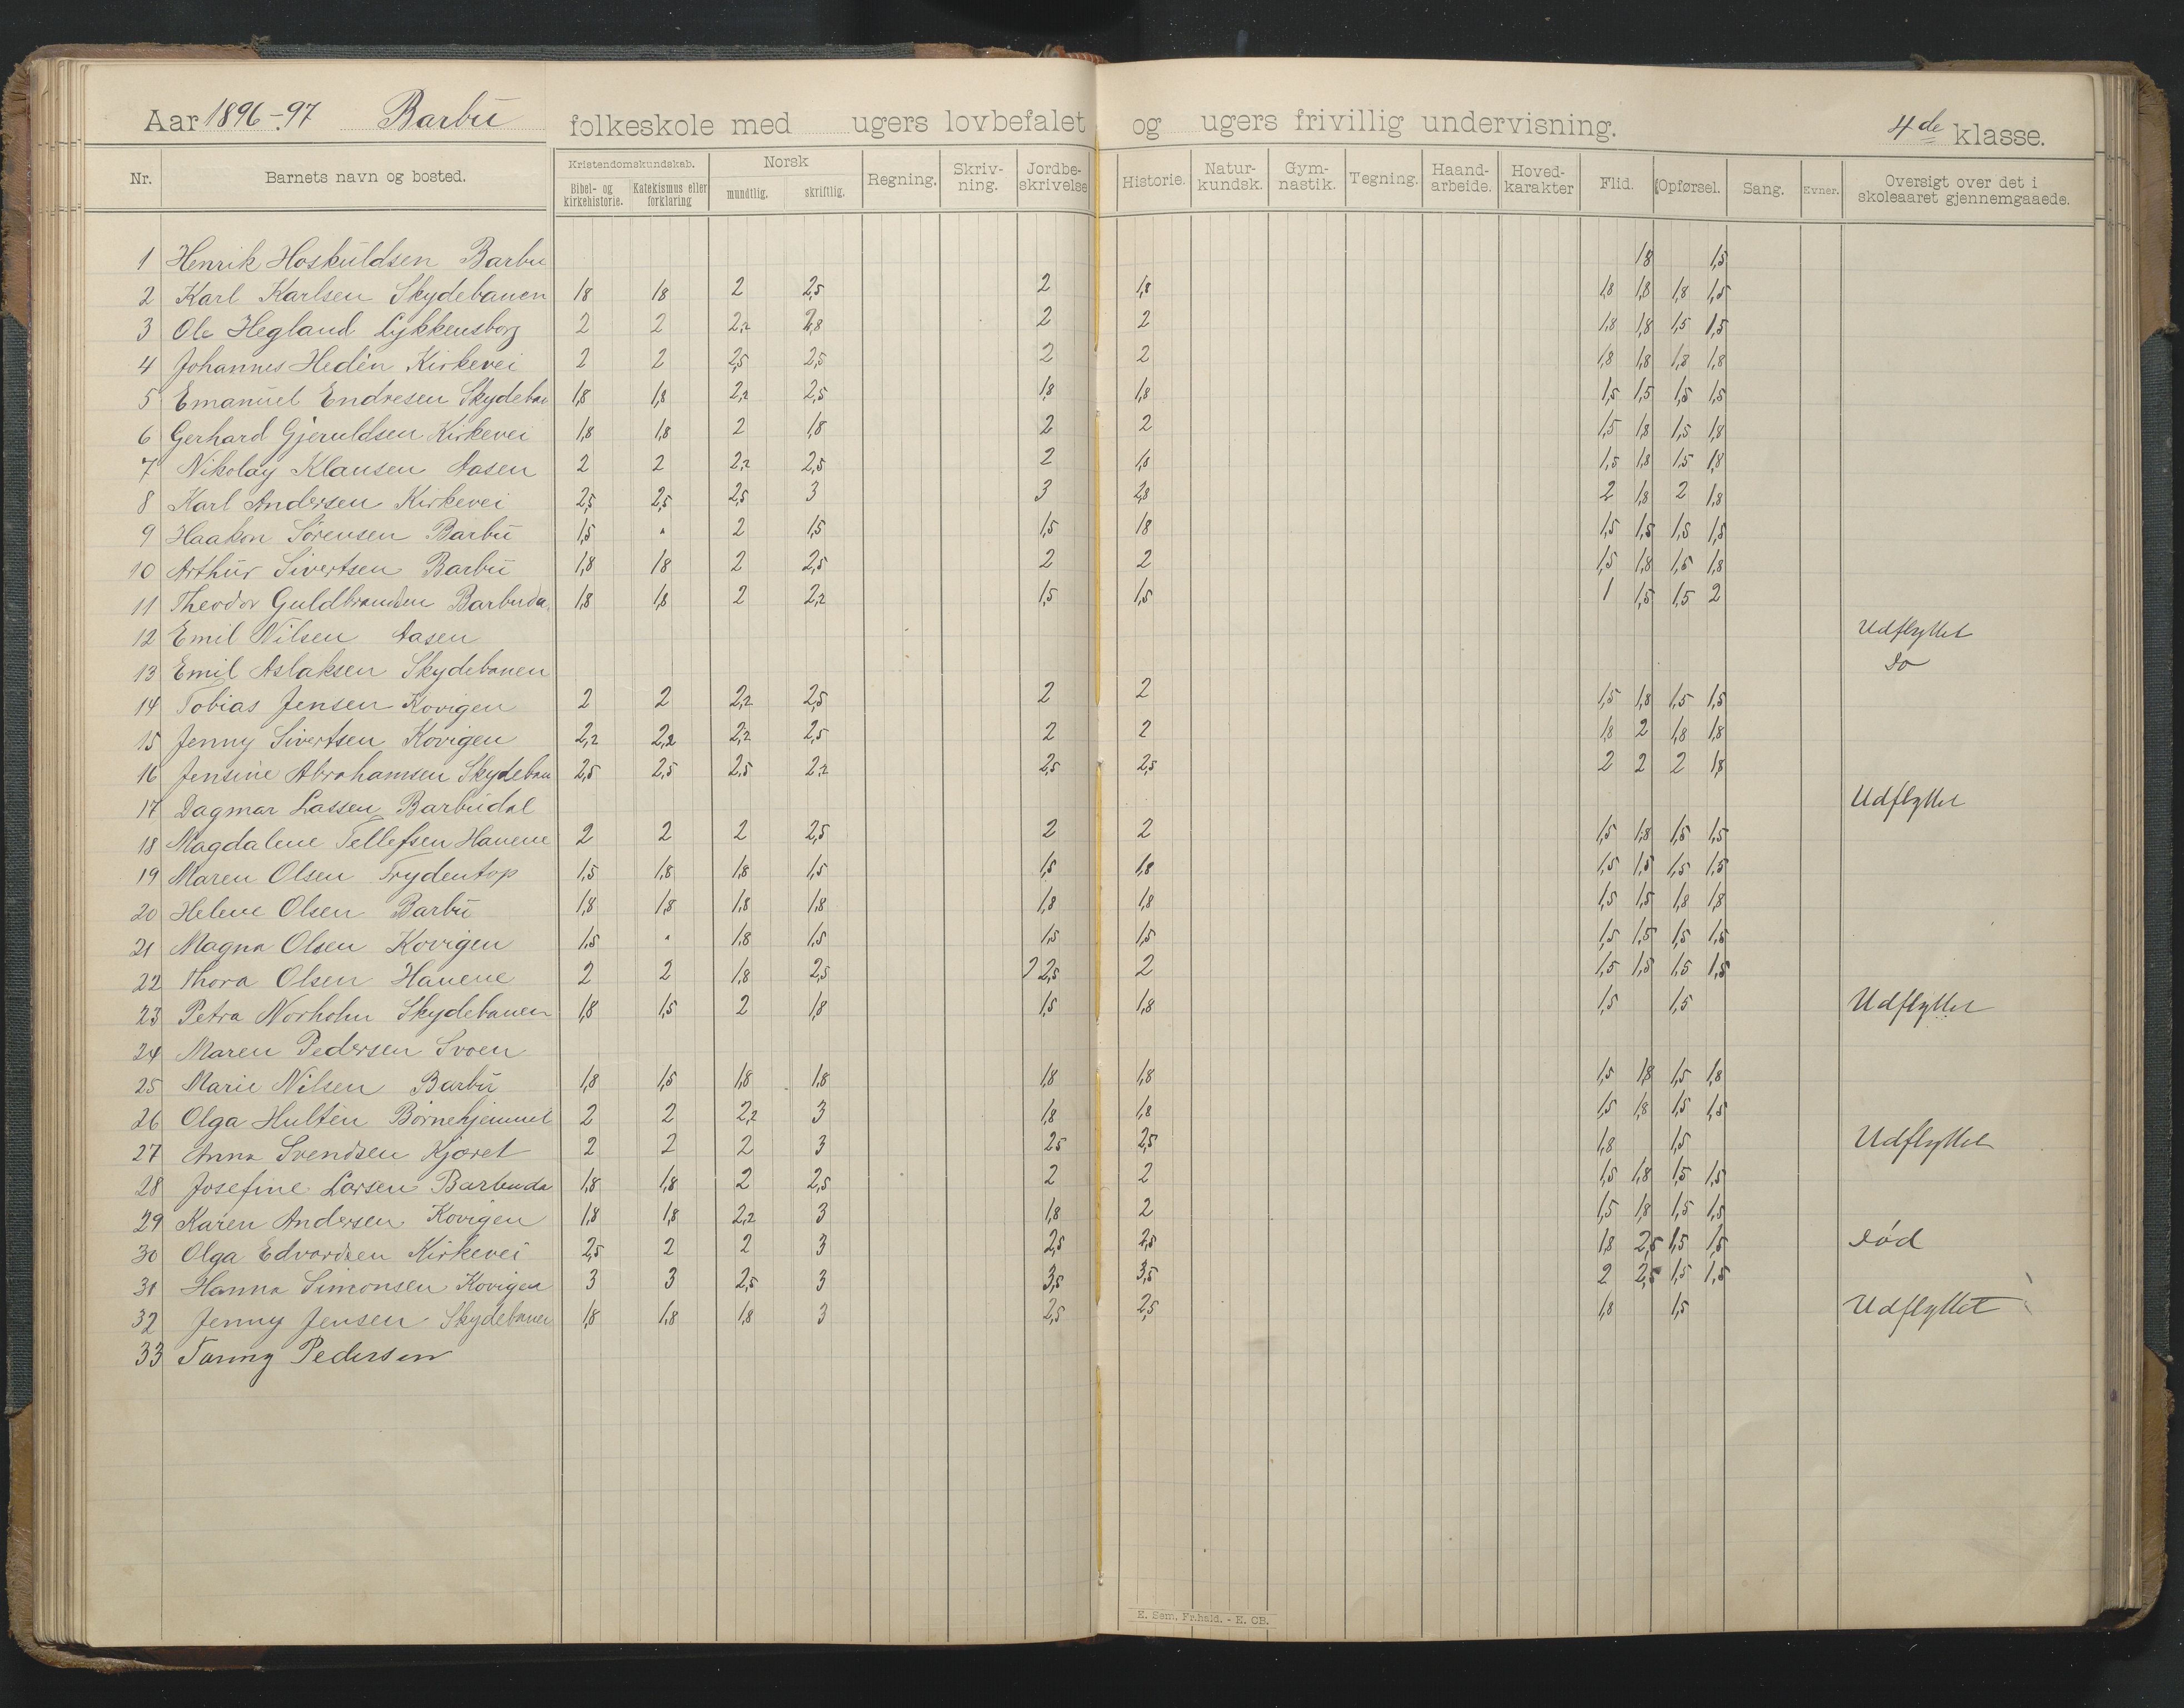 Aar 1896-97 Barbu folkeskole med ugers lovbefalet og ugers frivillig undervisning. 4de klasse.
Nr. Barnets navn og bosted. Kristendomskundskab. Bibel- og kirkehistorie. Katekismus eller forklaring Norsk mundtlig. skriftlig. Regning. Skriv-ning. Jordbe-skrivelse Historie. Natur-kundsk. Gym-nastik. Tegning. Haand-arbeide. Hoved-karakter Flid. Opførsel. Sang. Evner. Oversigt over det i skoleaaret gjennemgaaede.
1 Henrik Hoskuldsen Barbu 1,8 1,5
2 Karl Karlsen Skydebanen 1,8 1,8 2 2,5 2 1,8 1,8 1,8 1,8 1,5
3 Ole Hegland Lykkensborg 2 2 2,2 2,8 2 2 1,8 1,8 1,5 1,5
4 Johannes Hedén Kirkevei 2 2 2,5 2,5 2 2 1,8 1,8 1,8 1,8
5 Emanuel Endresen Skydeban 1,8 1,8 2,2 2,5 1,8 1,8 1,5 1,5 1,5 1,5
6 Gerhard Gjeruldsen Kirkevei 1,8 1,8 2 1,8 2 2 1,5 1,8 1,5 1,8
7 Nikolay Klausen Aasen 2 2 2,2 2,5 2 1,8 1,5 1,8 1,5 1,8
8 Karl Andersen Kirkevei 2,5 2,5 2,5 3 3 2,8 2 1,8 2 1,8
9 Haakon Sørensen Barbu 1,5 " 2 1,5 1,5 1,8 1,5 1,5 1,5 1,5
10 Arthur Sivertsen Barbu 1,8 1,8 2 2,5 2 2 1,5 1,8 1,5 1,8
11 Theodor Guldbrandsen Barbuda. 1,8 1,8 2 2,2 1,5 1,5 1 1,5 1,5 2
12 Emil Nilsen Aasen Udflyttet
13 Emil Aslaksen Skydebanen Do
14 Tobias Jensen Kovigen 2 2 2,2 2,5 2 2 1,5 1,8 1,5 1,5
15 Jenny Sivertsen Kovigen 2,2 2,2 2,2 2,5 2 2 1,8 2 1,8 1,8
16 Jensine Abrahamsen Skydeban 2,5 2,5 2,5 2,2 2,5 2,5 2 2 2 1,8
17 Dagmar Lassen Barbudal Udflyttet
18 Magdalene Tellefsen Hauene 2 2 2 2,5 2 2 1,5 1,8 1,5 1,5
19 Maren Olsen Frydentop 1,5 1,8 1,8 1,5 1,5 1,8 1,5 1,5 1,5 1,5
20 Helene Olsen Barbu 1,8 1,8 1,8 1,8 1,8 1,8 1,5 1,5 1,8 1,8
21 Magna Olsen Kovigen 1,5 " 1,8 1,5 1,5 1,5 1,5 1,5 1,5 1,5
22 Thora Olsen Hauene 2 2 1,8 2,5 2 2,5 2 1,5 1,5 1,5 1,5
23 Petra Norholm Skydebanen 1,8 1,5 2 1,8 1,5 1,8 1,5 1,5 Udflyttet
24 Maren Pedersen Svoen
25 Marie Nilsen Barbu 1,8 1,5 1,8 1,8 1,8 1,8 1,5 1,8 1,5 1,8
26 Olga Hultén Børnehjemmet 2 2 2,2 3 1,8 1,8 1,5 1,8 1,5 1,5
27 Anna Svendsen Kjæret 2 2 2 3 2,5 2,5 1,8 1,5 Udflyttet
28 Josefine Larsen Barbuda 1,8 1,8 2 2,5 2 2 1,5 1,8 1,5 1,5
29 Karen Andersen Kovigen 1,8 1,8 2,2 3 1,8 2 1,5 1,8 1,5 1,5
30 Olga Edvardsen Kirkevei 2,5 2 2 3 2,5 2,5 1,8 2,5 1,5 1,5 død
31 Hanna Simonsen Kovigen 3 3 2,5 3 3,5 3,5 2 2,5 1,5 1,5
32 Jenny Jensen Skydebanen 1,8 1,8 1,8 3 2,5 2,5 1,8 1,5 Udflyttet
33 Fanny Pedersen
E. Sem, Fr.hald. - E. CB.